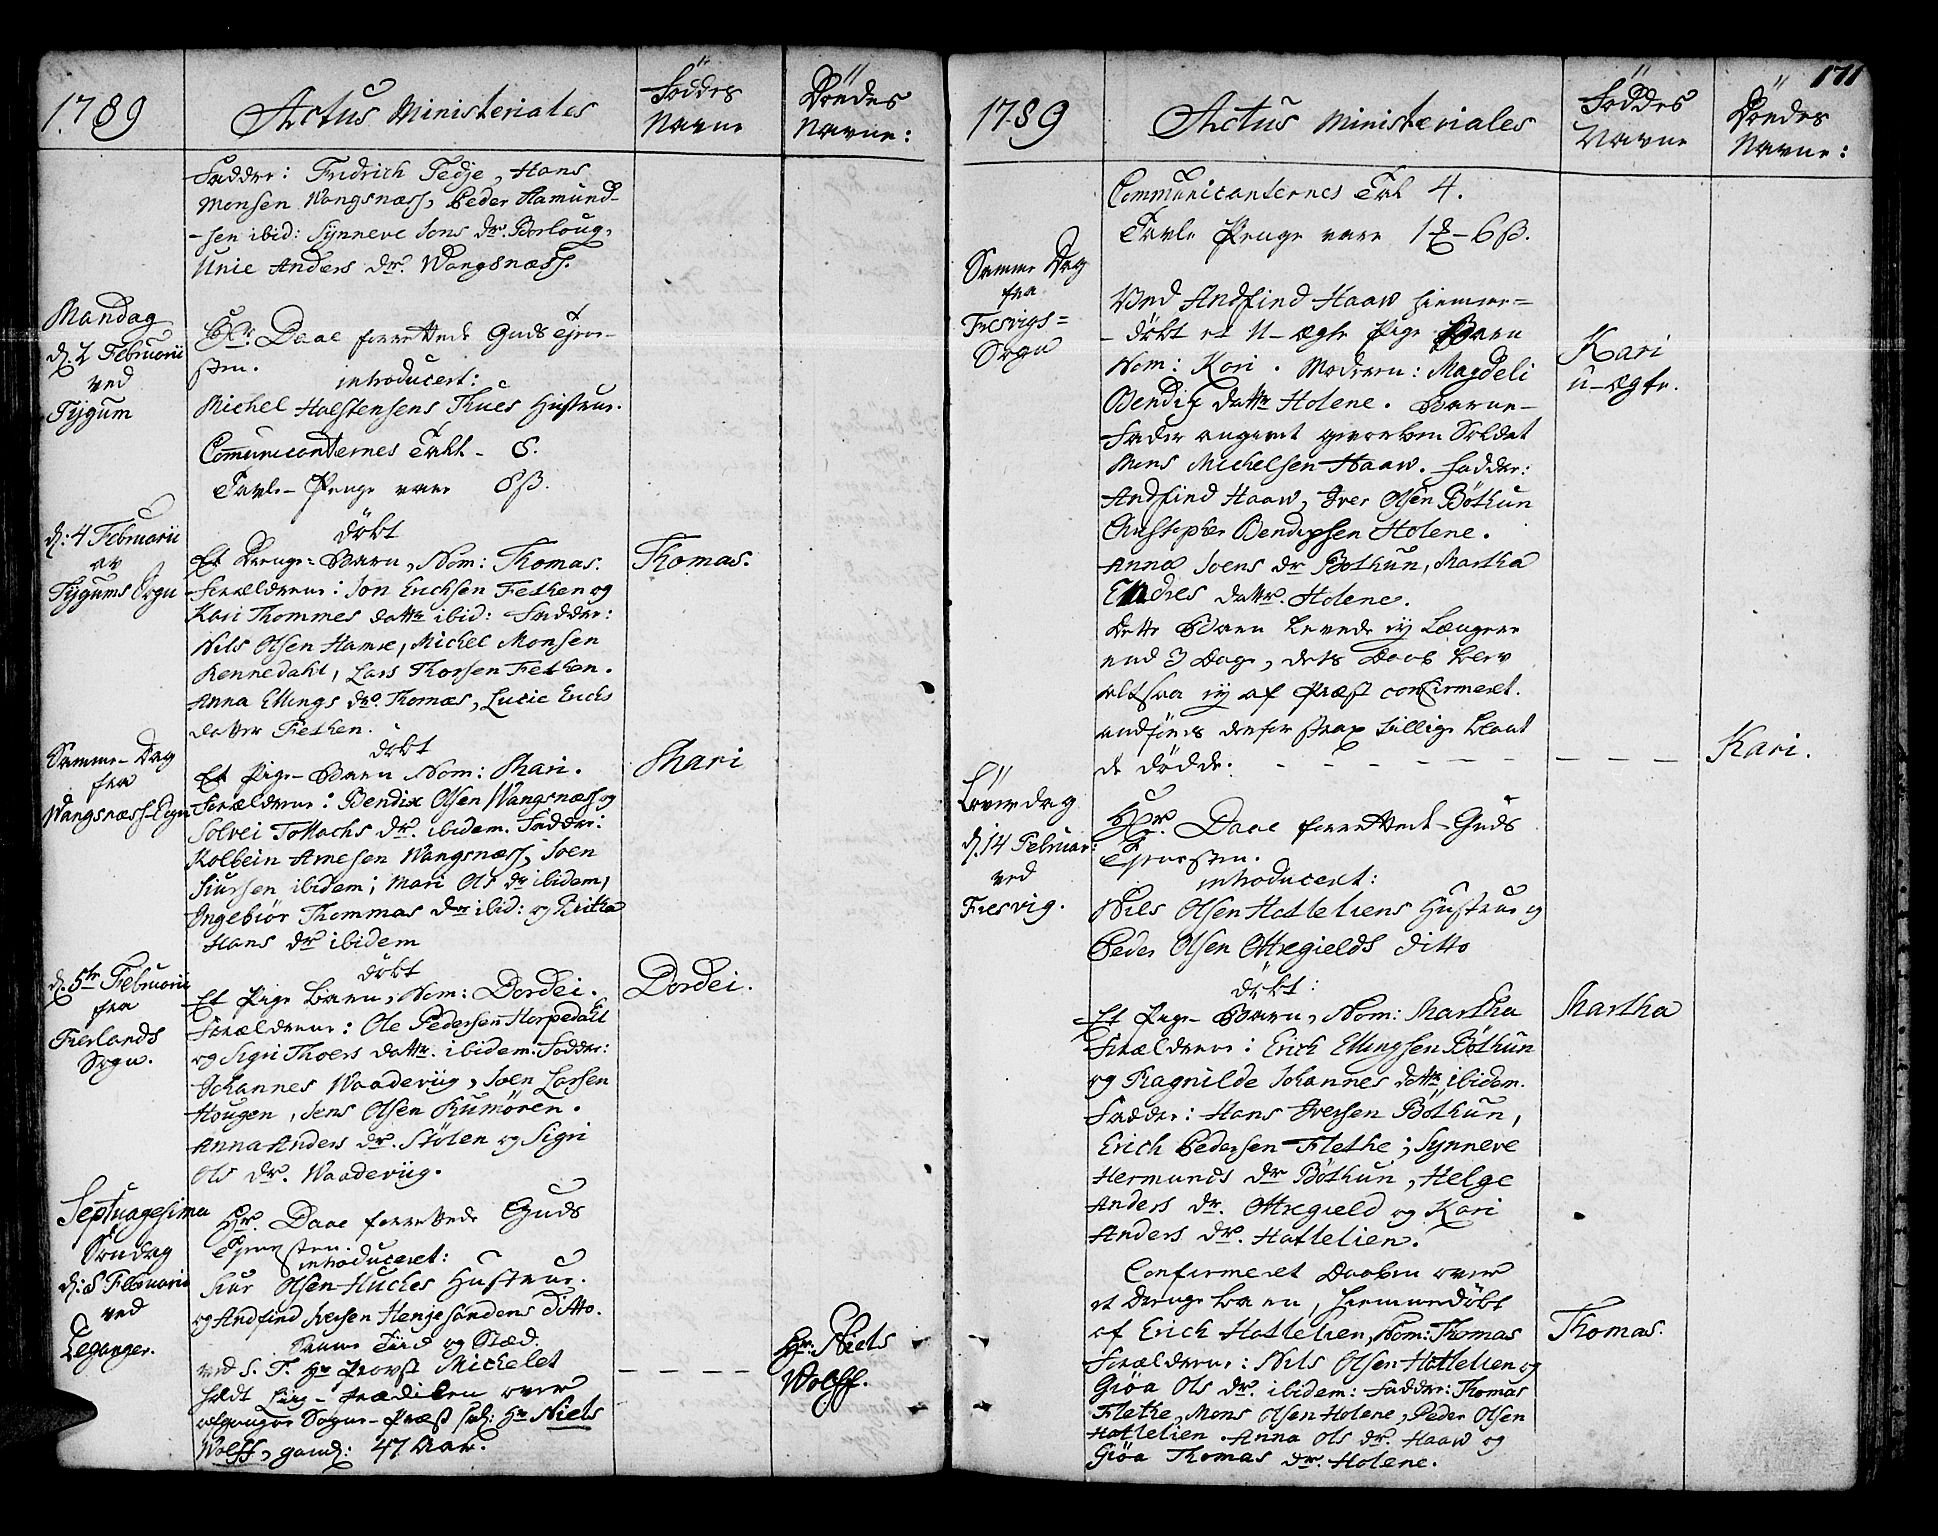 1789
Actus Ministeriales
Föddes
Navne
Döedes
Navne:
Faddre: Fridrich Tedje, Hans
Monsen Wangsnæss, Peder Hamund-
-sen ibid: Synneve Jons dr. Borloug,
Unie Anders dr. Wangsnæss.
Mandag
d. 2 Februarii
ved
Tygum
Hr. Daae forrettede Guds Tjene-
sten.
introducert:
Michel Holstensens Thues Hustrue.
Communicanternes Tall - 8.
Tavle-Penge vare 8ß.
d: 4 Februarii
av
Tygums Sogn
döbt
Et Drenge-Barn, Nom: Thomas.
Thomas.
Forældrene: Jon Erichsen Fethen og
Kari Thommes dattr ibid: Faddre:
Nils Olsen Hamre, Michel Monsen
Rennedahl, Lars Thorsen Fethen.
Anna Ellings dr. Thomæs, Lucie Erichs
datter Fethen.
Samme-Dag
fra
Wangsnæss-Sogn
döbt
Et Pige-Barn Nom: Mari.
Mari
Forældrene: Bendix Olsen Wangsnæss og
Solvei Tollachs dr. ibidem. Faddre:
Kolbein Arnesen Wangsnæss, Joen
Siursen ibidem; Mari Ols dr ibidem,
Ingebiör Thommas dr ibid: og Britha
Hans dr ibidem
d. 5te Februarii
fra
Fierlands
Sogn.
döbt
Et Pige Barn, Nom: Dordei.
Dordei.
Forældrene: Ole Pedersen Horpedahl
og Sigri Thoers dattr. ibidem. Faddre:
Johannes Waadeviig, Joen Larsen
Hougen, Jens Olsen Rumören.
Anna Anders dr. Stölen og Sigri
Ols dr. Waadeviig.
Septuagesima
Söndag
d: 8 Februarii
ved
Leganger.
Hr. Daae forrettede Guds
Tjenesten.
introduceret:
Siur Olsen Huches Hustrue.
og Andfind Iversen Henjesandens ditto.
Samme Tiid og Stæd
ved S. T. Hr Provst Michelet
holdt Liig-Prædiken over
afgangne Sogne-Præst sal: Hr Niels
Wolff, gaml: 47 Aar.
Hr. Niels
Wolff.
171
1789
Actus Ministeriales
Föddes
Navne
Döedes
Navne:
Communicanternes Tal 4.
Tavle Penge vare 1 - 6ß.
Samme Dag
fra
Fresvigs=
Sogn
Ved Andfind Haaw hiemme=
-döbt et U-ægte Pige Barn
Nom: Kari. Moderen: Magdeli
Kari
u-ægte.
Bendix dattr Holene. Barne-
Fader angivet gevorben Soldat
Mons Michelsen Haaw. Faddre:
Andfind Haaw, Iver Olsen Böthun
Christopher Bendixsen Holene.
Anna Joens dr Bothun, Martha
Endres dattr. Holene.
Dette Barn levede ej længere
end 3 Dage, dets Daab blev
altsaa ej af Præst confirmeret.
andföres derfor strax tillige blant
de dödde.
Kari.
Löverdag
d. 14 Februar:
ved
Fresvig.
Hr. Daae forrettede Guds
Tjenesten.
introducert:
Nils Olsen Hotteliens Hustrue og
Peder Olsen Ottregields ditto
döbt:
Et Pige-Barn, Nom: Martha
Martha
Forældrene: Erich Ellingsen Böthun
og Ragnilde Johannes dattr. ibidem.
Faddre: Hans Iversen Böthun,
Erich Pedersen Flethe; Synneve
Hermunds dr Böthun, Helge
Anders dr. Ottregield og Kari
Anders dr. Hottelien.
Confirmeret Daaben over
et Drenge Barn, hiemmedöbt
af Erich Hottelien, Nom: Thomas
Thomas.
Forældrene: Nils Olsen Hottelien og
Giöa Ols dr. ibidem: Faddre: Thomas
Flethe, Mons Olsen Holene, Peder Olsen
Hottelien. Anna Ols dr. Haaw og
Giöa Thomas dr. Holene.